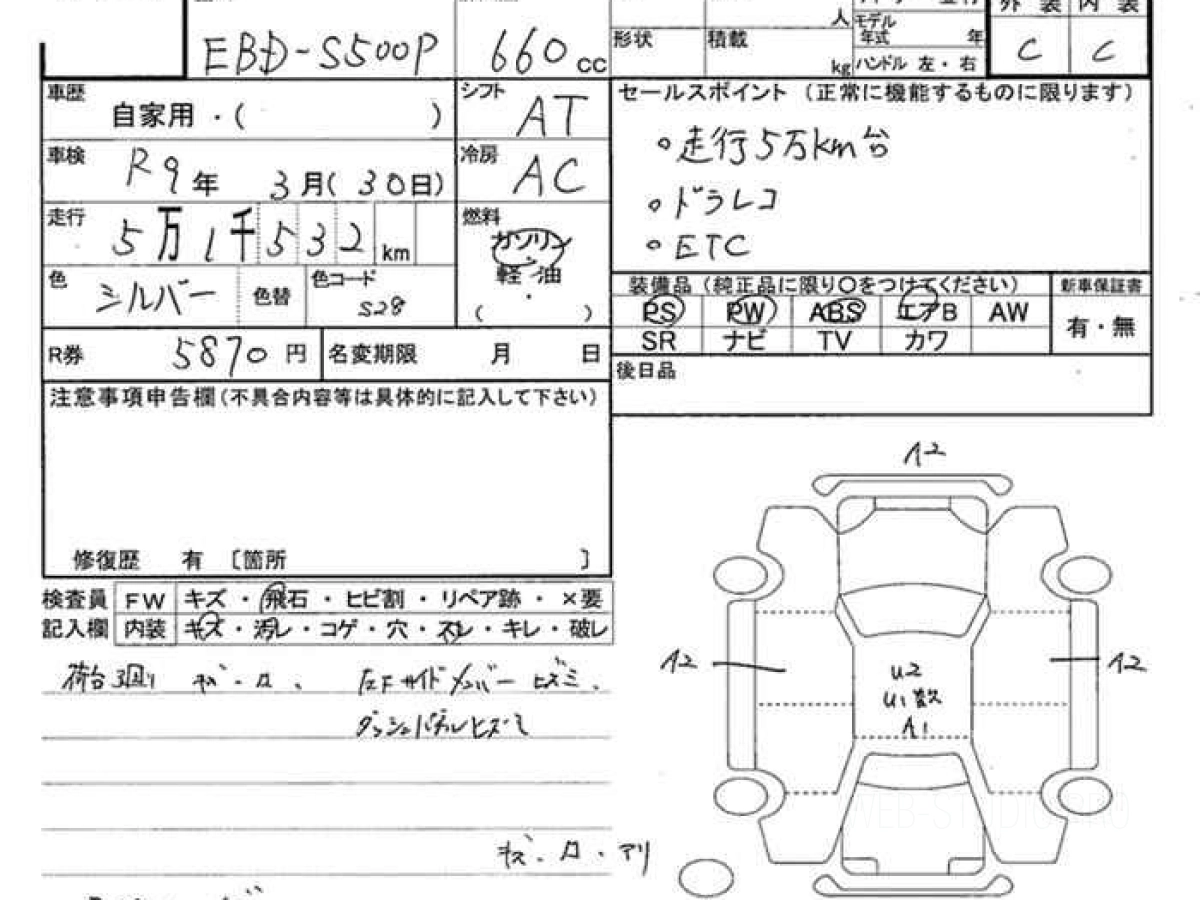 EBD-S500P
660 cc
人
形状 積載 kg
モデル年式 年
ハンドル 左・右
外装 内装
C C
車歴 自家用・( )
シフト AT
車検 R9年 3月(30日)
冷房 AC
走行 5万1千532km
燃料 ガソリン・軽油・( )
色 シルバー 色替 色コード S28
R券 5870円 名変期限 月 日
注意事項申告欄(不具合内容等は具体的に記入して下さい)
修復歴 有 [箇所 ]
セールスポイント (正常に機能するものに限ります)
○走行5万km台
○ドラレコ
○ETC
装備品(純正品に限り○をつけてください) 新車保証書
PS PW ABS エアB AW 有・無
SR ナビ TV カワ
後日品
検査員記入欄
FW キズ・飛石・ヒビ割・リペア跡・×要
内装 キズ・汚レ・コゲ・穴・スレ・キレ・破レ
荷台廻り キズ・凹、 左Fサイドメンバーヒズミ、
ダッシュパネルヒズミ
キズ・凹・アリ
A2
A2 A2
U2
U1数
A1
WEB-STUDIO.PRO